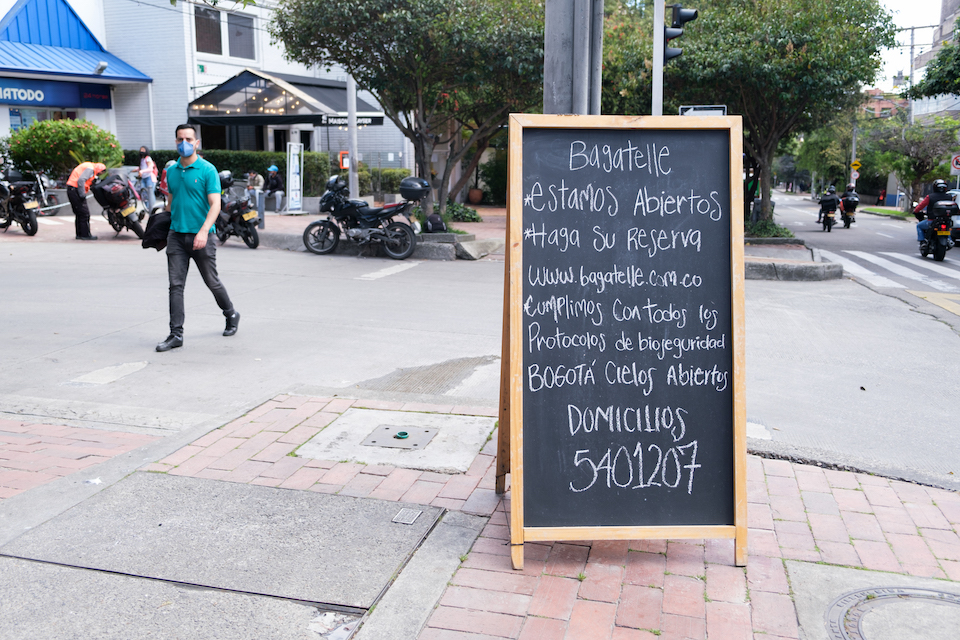 MATODO
MAISON
Bagatelle
*Estamos Abiertos
*Haga su Reserva
www.bagatelle.com.co
*Cumplimos con todos los
Protocolos de biojeguridad
BOGOTÁ Cielos Abiertos
DOMICILIOS
5401207